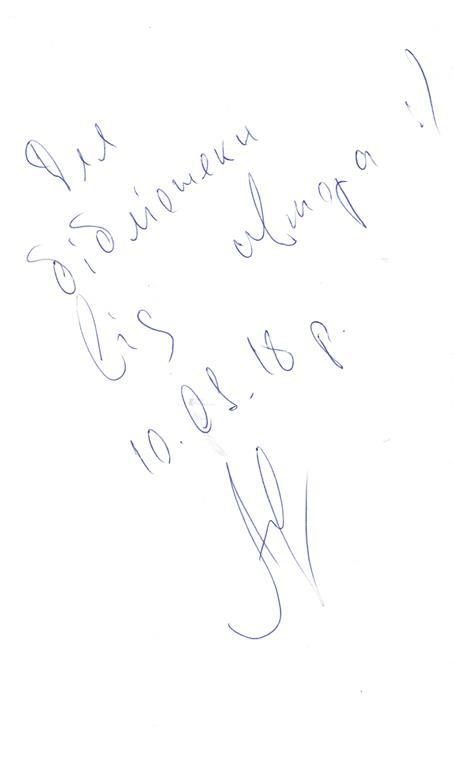 Для
бібліотеки
від автора :)
10.08.18 р.